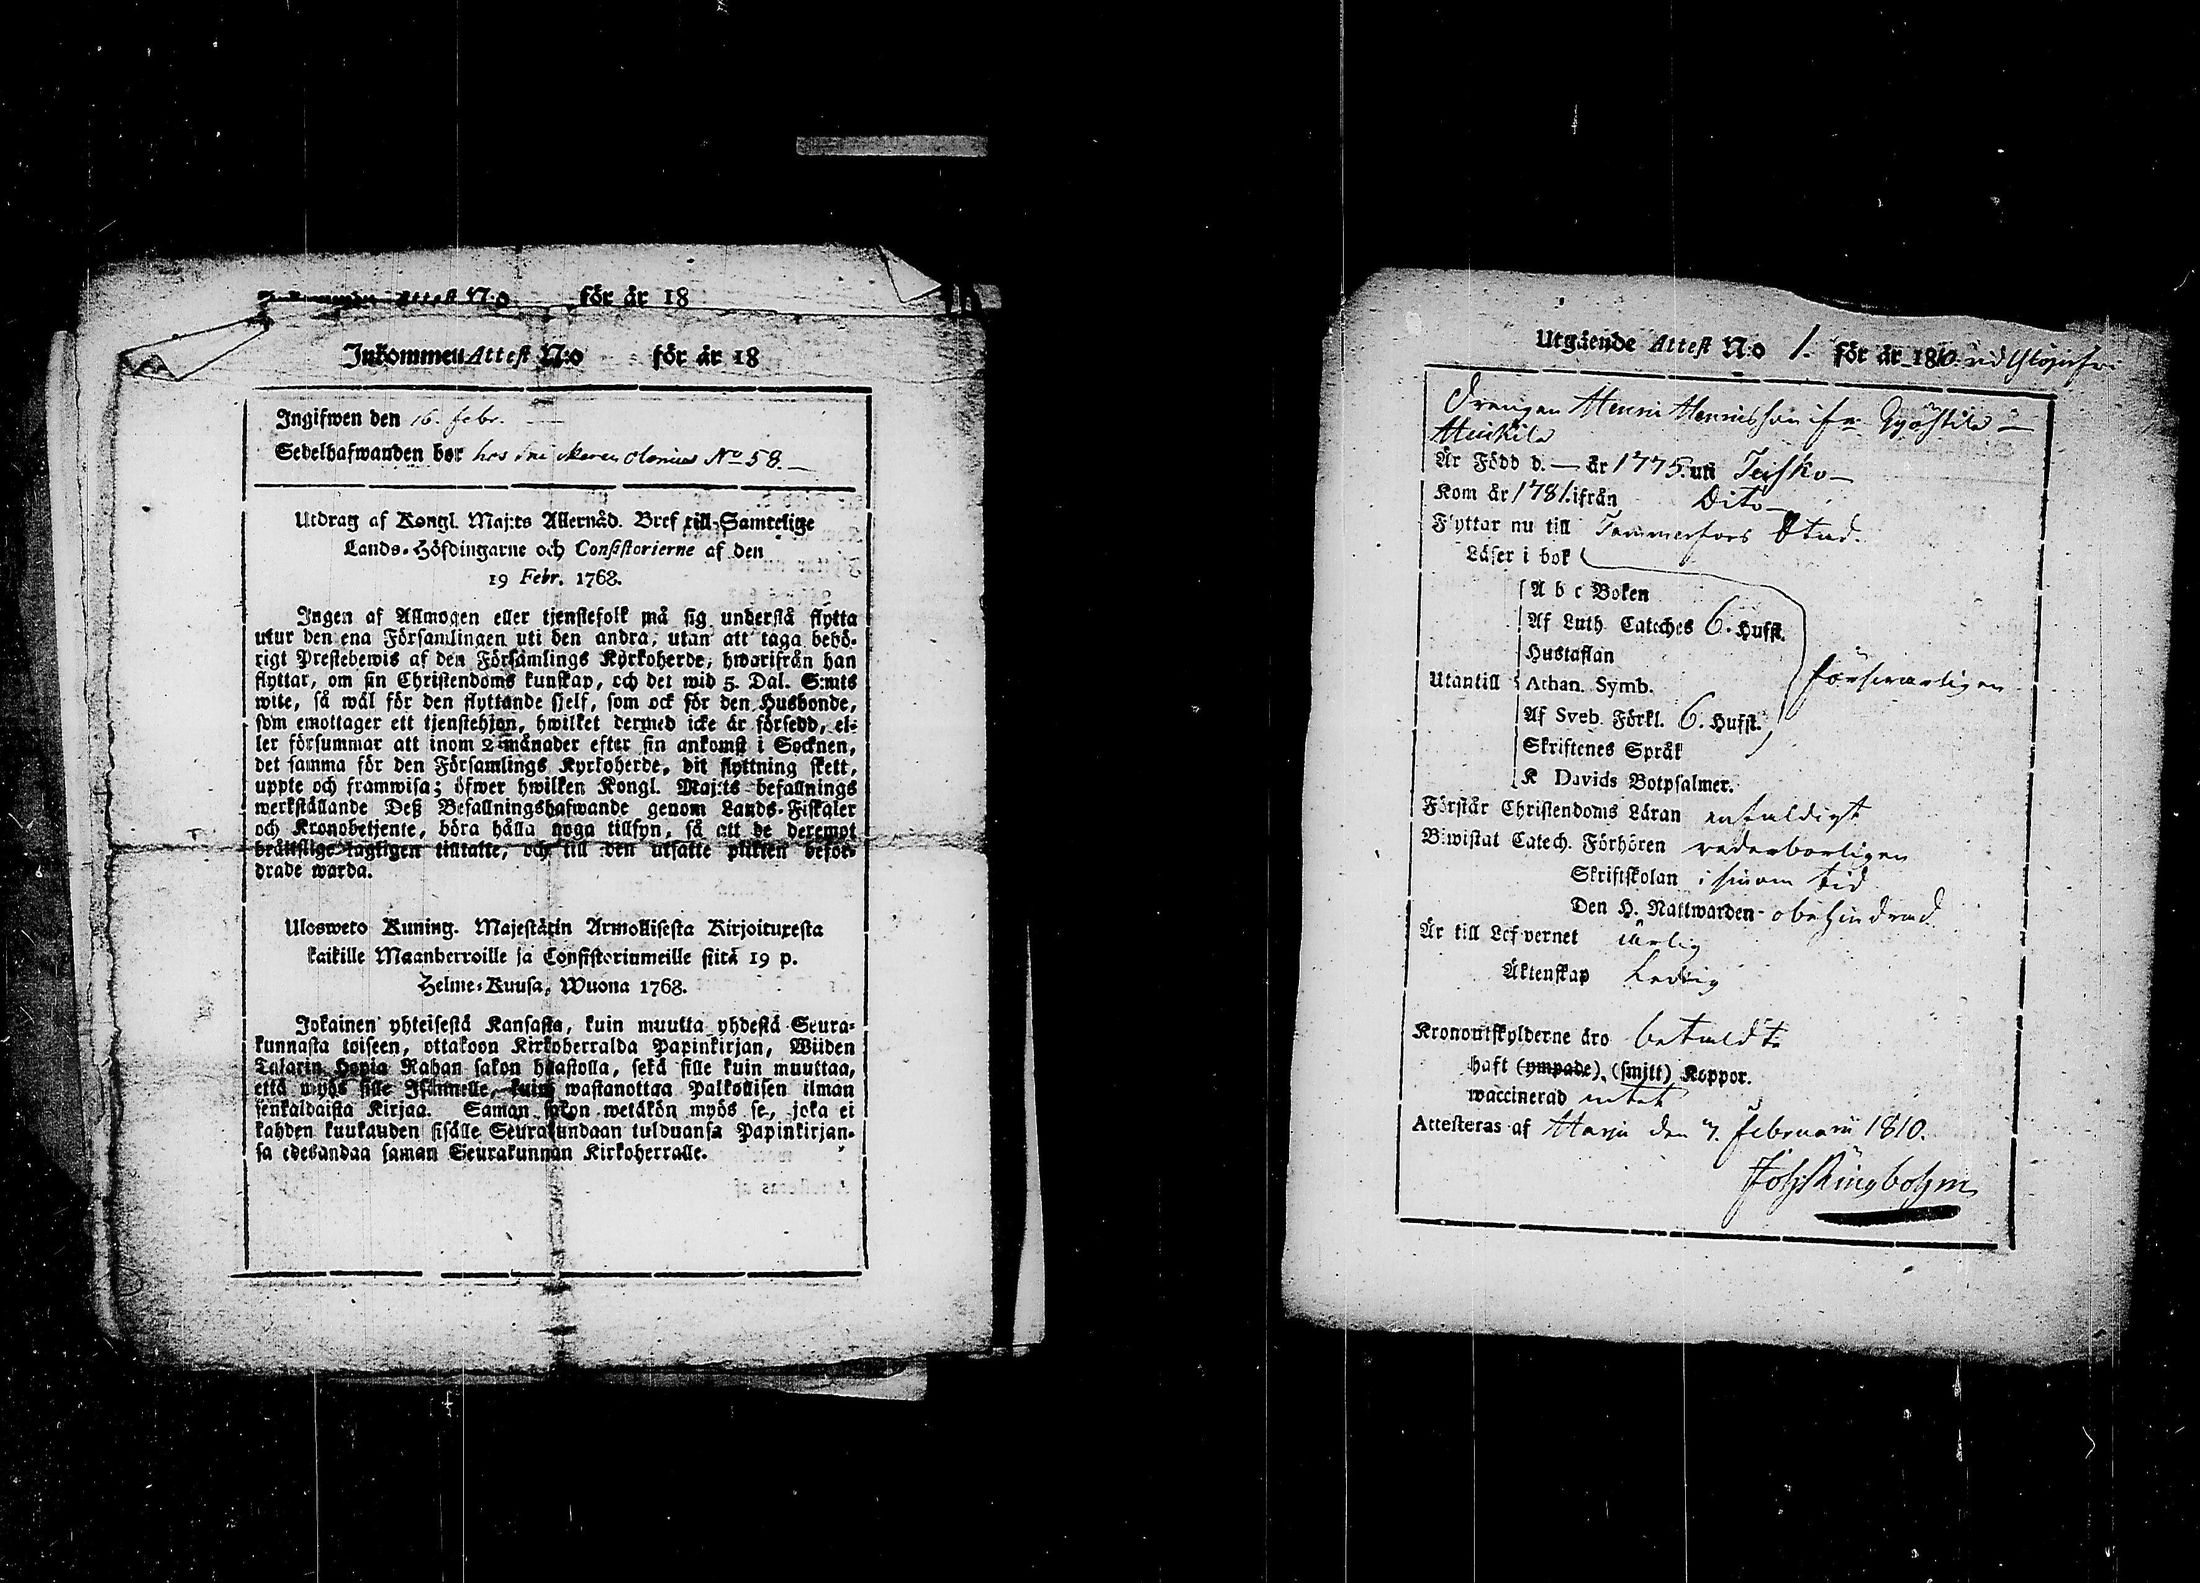 Attest N:o för år 18
Inkommen Attest N:o för år 18
Ingifwen den 16. Febr. —
Sedelhafwanden bor hos Snickaren Clenius No 58. —
Utdrag af Kongl. Maj:ts Allernåd. Bref till Samtelige
Lands-Höfdingarne och Consistorierne af den
19 Febr. 1768.
Ingen af Allmogen eller tjenstefolk må sig understå flytta
utur den ena Församlingen uti den andra, utan att taga behö-
rigt Prestebewis af den Församlings Kyrkoherde, hwarifrån han
flyttar, om sin Christendoms kunskap, och det wid 5. Dal. S:mts
wite, så wäl för den flyttande sjelf, som ock för den Husbonde,
som emottager ett tjenstehjon, hwilket dermed icke är försedd, el-
ler försummar att inom 2 månader efter sin ankomst i Socknen,
det samma för den Församlings Kyrkoherde, dit flyttning skett,
uppte och framwisa; öfwer hwilken Kongl. Maj:ts befallnings
werkställande Deß Befallningshafwande genom Lands-Fiskaler
och Kronobetjente, böra hålla noga tillsyn, så att de deremot
brättslige lagligen tilltalte, och till den utsatte plikten beford-
drade warda.
Ulosweto Kuning. Majestätin Armollisesta Kirjoituxesta
kaikille Maanherroille ja Consistoriumeille siitä 19 p.
Helme-Kuusa, Wuona 1768.
Jokainen yhteisestä Kansasta, kuin muutta yhdestä Seura-
kunnasta toiseen, ottakoon Kirkoherralda Papinkirjan, Wiiden
Talarin Hopia Rahan sakon haastolla, sekä sille kuin muuttaa,
että myös sille Isännelle, kuin wastanottaa Palkollisen ilman
senkaldaista Kirjaa. Saman sakon wetäkön myös se, joka ei
kahden kuukauden sisälle Seurakundaan tulduansa Papinkirjan-
sa edesandaa saman Seurakunnan Kirkoherralle.
Utgående Attest N:o 1. för år 1810.
Drengen Henric Henricsson fr.
Heickilä
Är Född d. — år 1775. uti Teisko —
Kom år 1781. ifrån Dito —
Flyttar nu till Tammerfors Stad.
Läser i bok
A b c Boken
Af Luth. Cateches 6. Hufst.
Hustaflan
Utantill Athan. Symb. försvarligen
Af Sveb. Förkl. 6. Hufst.
Skriftenes Språk
K Davids Botpsalmer.
Förstår Christendoms Läran enfaldigt
Biwistat Catech. Förhören vederbörligen
Skriftskolan i sinom tid
Den H. Nattwarden obehindrad
Är till Lefvernet ärlig
Äktenskap Ledig
Kronoutskylderne äro betaldt
haft (ympade), (smitt) Koppor.
waccinerad
Attesteras af Harju den 7. Februarii 1810.
Joh: Ringbohm